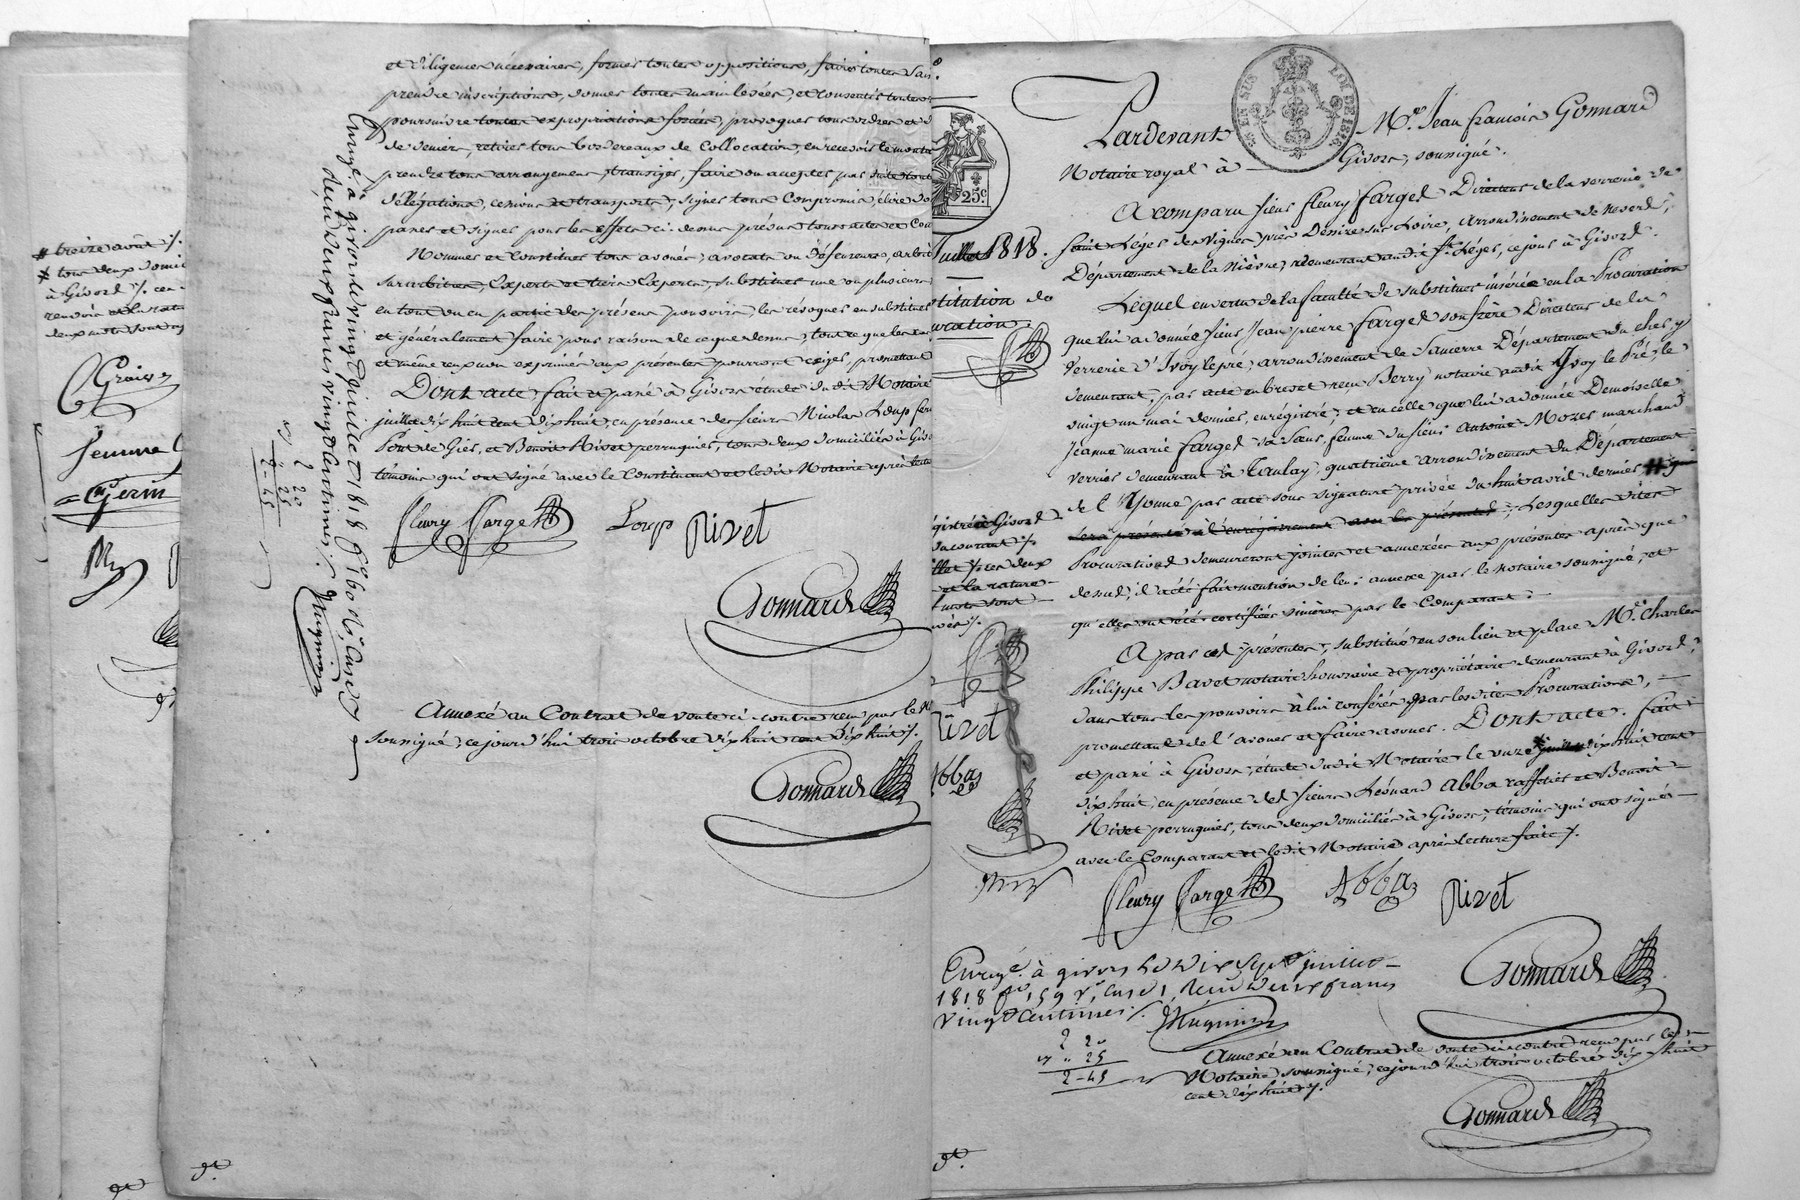 et diligences nécessaires, former toutes oppositions, faire toutes
prendre inscriptions, donner toutes main levées, et consentir toutes
poursuivre toutes expropriations forcées, provoquer tous ordres et
de deniers, retirer tous bordereaux de Collocation, en recevoir le
prendre tous arrangemens, transiger, faire ou accepter par
délégations, cessions et transports, signer tous Compromis, élire
passer et signer pour les effets ci-dessus présens tous actes et
Nommer et Constituer tous avoués, avocats ou défenseurs,
surarbitres, Experts et tiers Experts, substituer une ou plusieurs
en tout ou en partie des présens pouvoirs, les révoquer en substituer
et généralement faire pour raison de ce que dessus, tout ce que les
et même ceux non exprimés aux présentes pourront exiger, promettant
Dont acte, fait et passé à Givors étude dudit Notaire
juillet dix huit cent dix huit, en présence des sieurs Nicolas Loup
Pont de Gier, et Benoit Rivet perruquier, tous deux domiciliés à
témoins qui ont signé avec le Constituant et ledit Notaire après
fleury farge
Loup
Rivet
Gonnard
Annexé au Contrat de vente ci contre reçu par le
soussigné, ce jourd'hui trois octobre dix huit cent dix huit ./.
Gonnard
Enregé. à givors le vingt juillet 1818 fo. 160 Vo. Case
deux francs vingt centimes
Mugnier
2 20
25
2-45
# treize août ./.
à Givors ./. ces
renvoi et la
deux mots sont
femme
Gerin
25c.
LOI DE 1816
Pardevant Me. Jean françois Gonnard
Notaire royal à Givors, soussigné.
A comparu sieur fleury farge Directeur de la verrerie de
saint Léger des vignes près Desise sur Loire, arrondissement de Nevers,
Département de la Nièvre, demeurant audit St. Léger, ce jour à Givors.
Lequel en vertu de la faculté de substituer insérée en la Procuration
que lui a donnée sieur Jean pierre farge son frère Directeur de la
verrerie d'Ivoy lepré, arrondissement de Sancerre Département du cher, y
demeurant, par acte en brevet reçu Berry notaire audit Ivoy le Pré, le
vingt un mai dernier, enregistré, et en celle que lui a donnée Demoiselle
Jeanne marie farge sa sœur, femme du sieur Antoine Mozer marchand
verrier demeurant à Tanlay, quatrième arrondissement du Département
de l'Yonne par acte sous signature privée du huit avril dernier #
sera présenté à l'enregistrement avec les présentes, Lesquelles dites
Procurations demeureront jointes et annexées aux présentes après que
dessus, il a été fait mention de leur annexe par le notaire soussigné, et
qu'elles ont été certifiées sincères par le Comparant.
A par ces présentes, substitué en son lieu et place Me. Charles
Philippe Bavet notaire honoraire et propriétaire demeurant à Givors,
dans tous les pouvoirs à lui conférés par les dites Procurations,
promettant de l'avouer et faire avouer. Dont acte. fait
et passé à Givors, étude dudit Notaire le onze juillet dix huit cent
dix huit, en présence des sieurs Léonard Abba raffetier et Benoit
Rivet perruquier, tous deux domiciliés à Givors, témoins qui ont signé
avec le Comparant et ledit Notaire après lecture faite ./.
fleury farge
Abba
Rivet
Gonnard
juillet 1818.
stitution de
uration.
gistrée à Givors
du courant ./.
et la rature
mots sont
Rivet
Abba
Enregé. à givors le dix sept juillet
1818 fo. 159 Vo. Case 1, Reçu deux francs
vingt Centimes ./.
Mugnier
2 20
25
2-45
Annexé au Contrat de vente ci contre reçu par le
Notaire soussigné, ce jourd'hui trois octobre dix huit
cent dix huit ./.
Gonnard